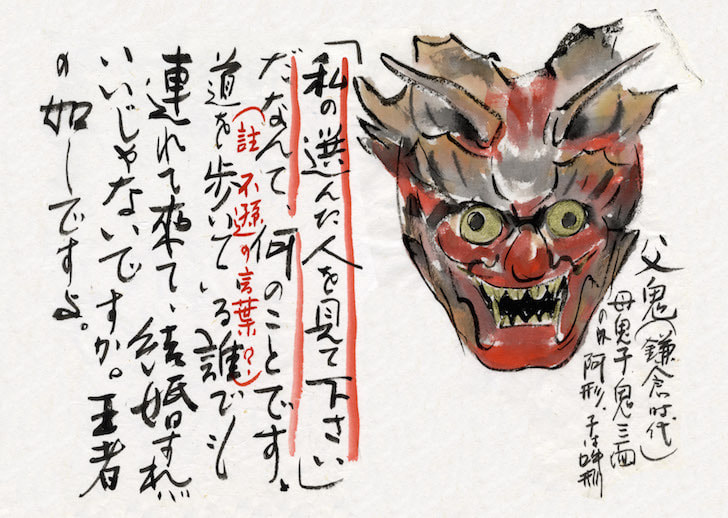 父鬼(鎌倉時代)
母鬼子鬼三面
阿形、子は吽形
「私の選んだ人を見て下さい」
だなんて、何のことです。
(註 不遜の言葉?!)
道を歩いている誰でも
連れて来て、結婚すれば
いいじゃないですか。王者
の如しですよ。